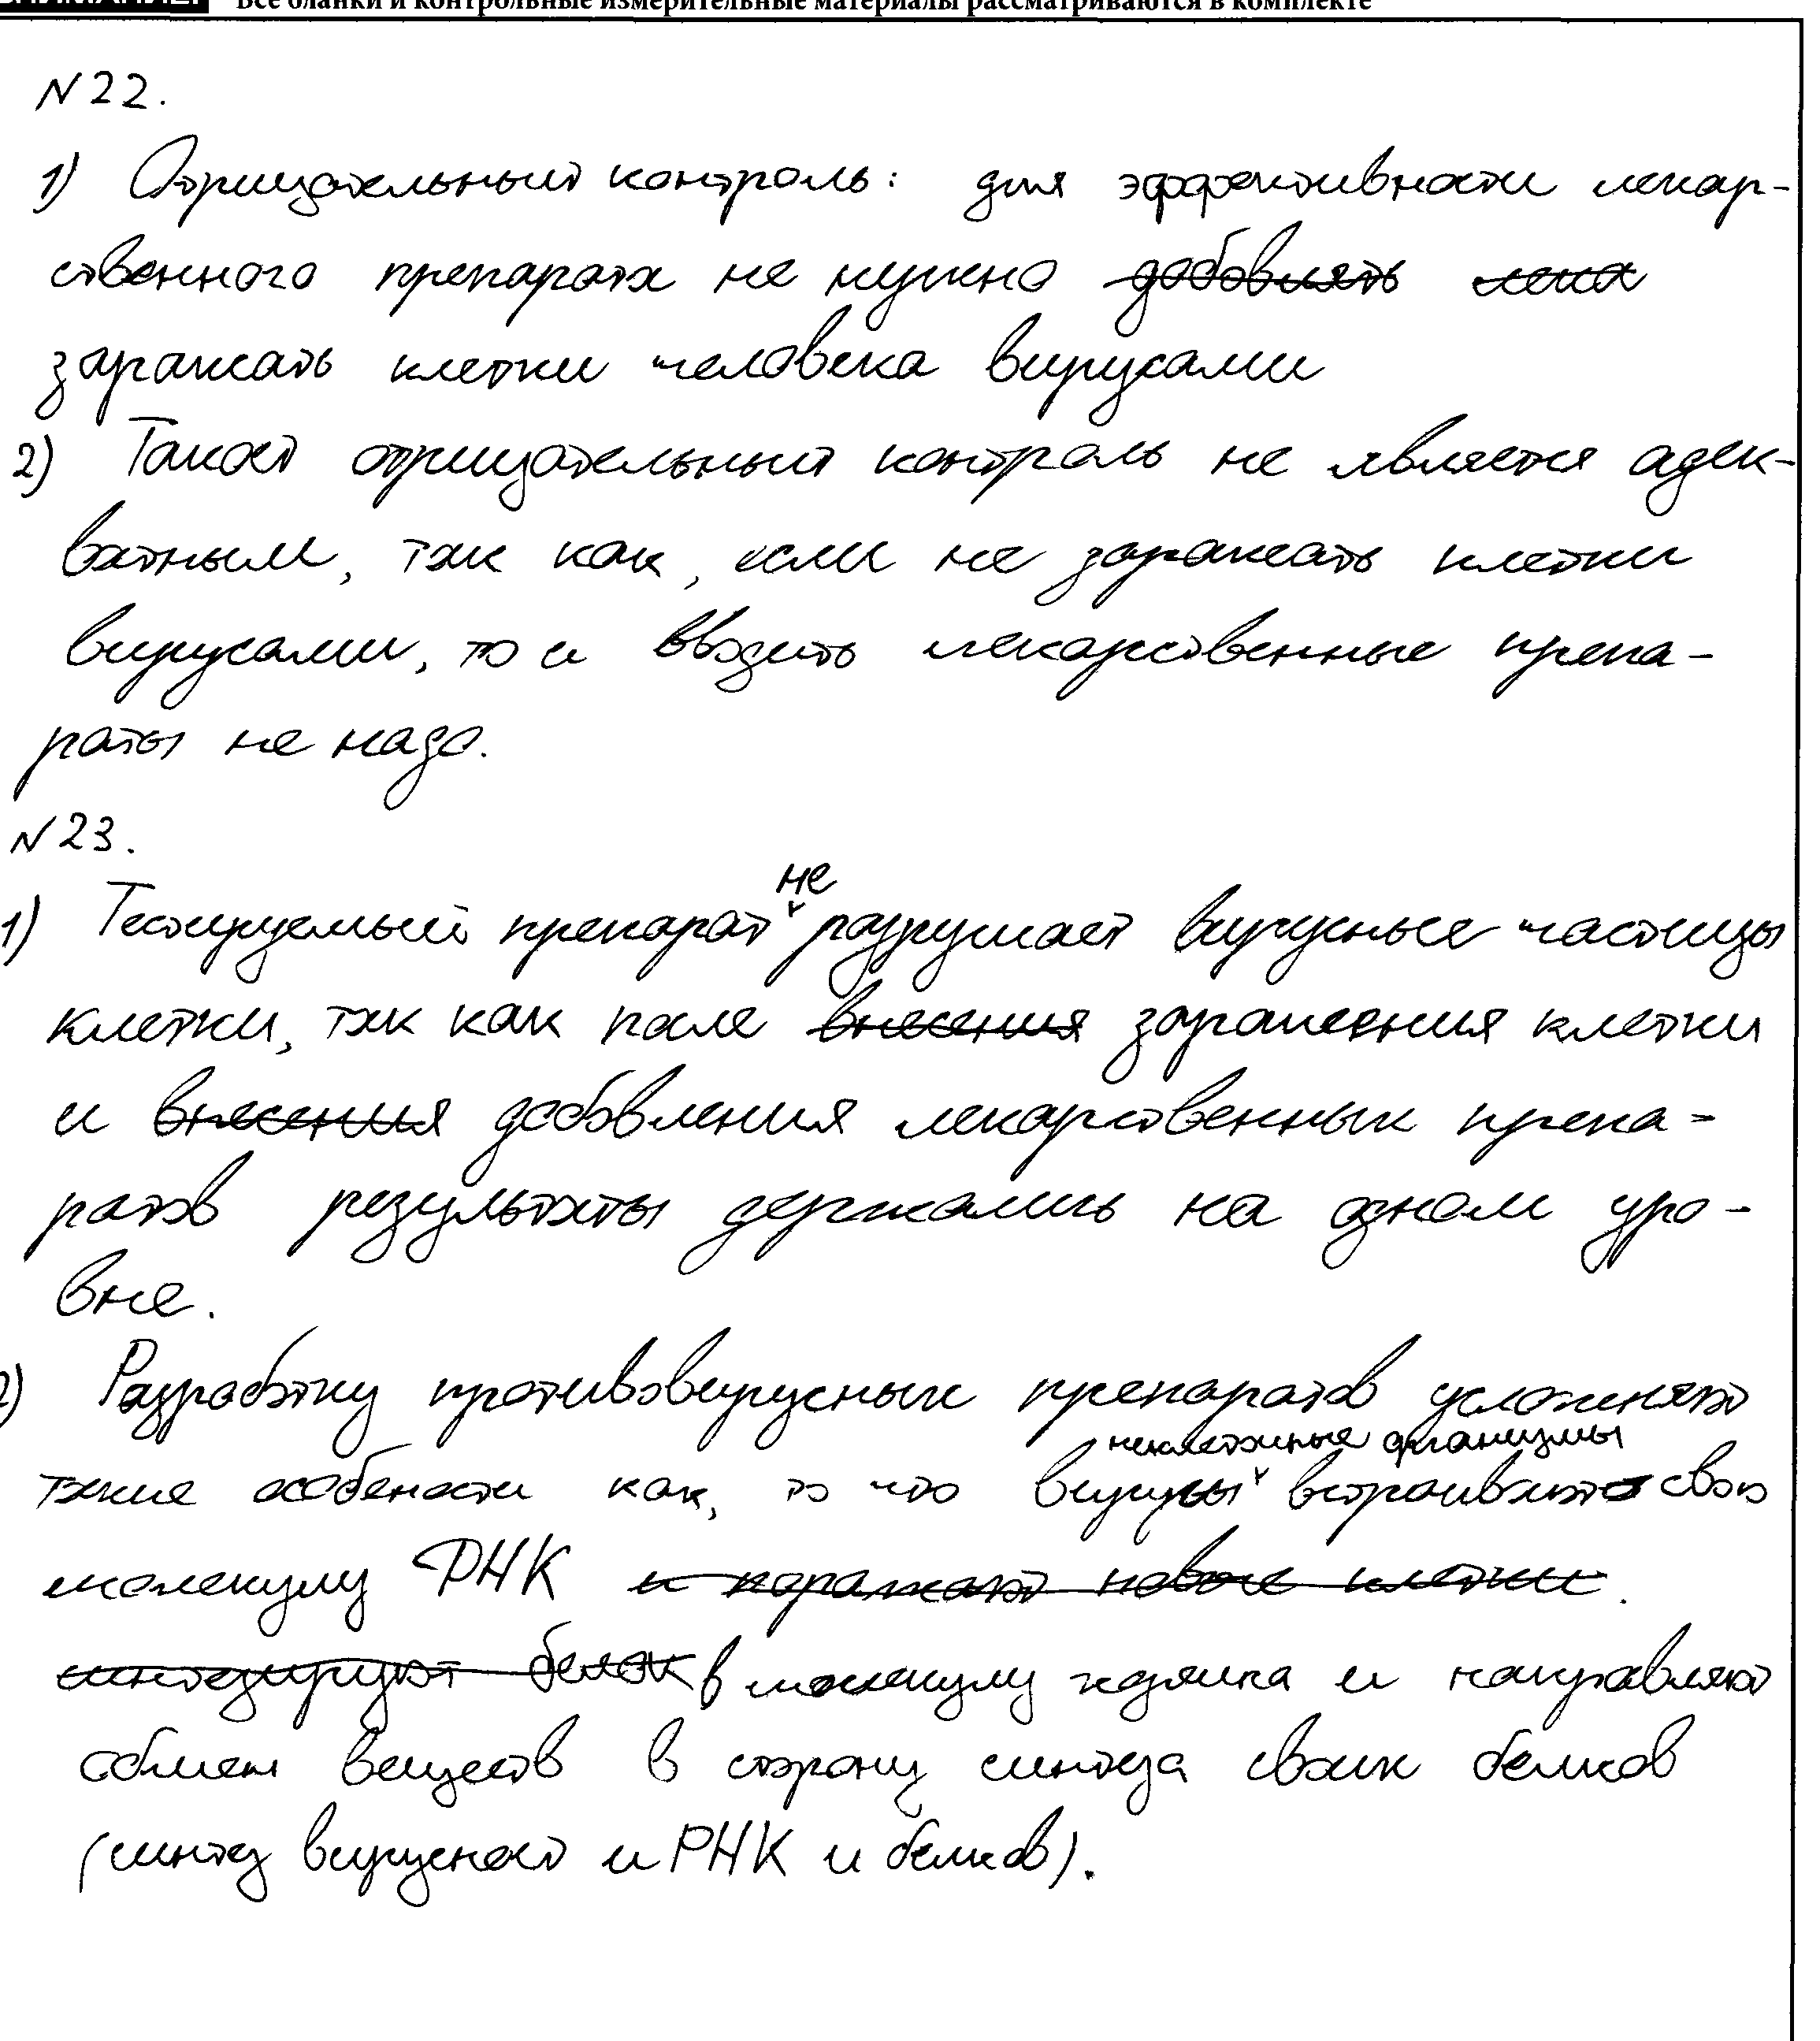 Все бланки и контрольные измерительные материалы рассматриваются в комплекте
N 22.
1) Отрицательный контроль: для эффективности лекар-
ственного препарата не нужно добовлять лека
заражать клетки человека вирусами
2) Такой отрицательный контроль не является адек-
ватным, так как, если не заражать клетки
вирусами, то и вводить лекарственные препа-
раты не надо.
N 23.
не
1) Тестируемый препарат разрушает вирусные частицы
клетки, так как после внесения заражения клетки
и внесения добовления лекарственных препа-
ратов результаты держались на одном уро-
вне.
2) Разработку противовирусных препаратов усложняют
неклеточные организмы
такие особености как, то что вирусы встраивают свою
молекулу РНК и поражают новые клетки.
синтезируют белок в молекулу хозяина и направляют
обмен веществ в сторону синтеза своих белков
(синтез вирусной и РНК и белков).